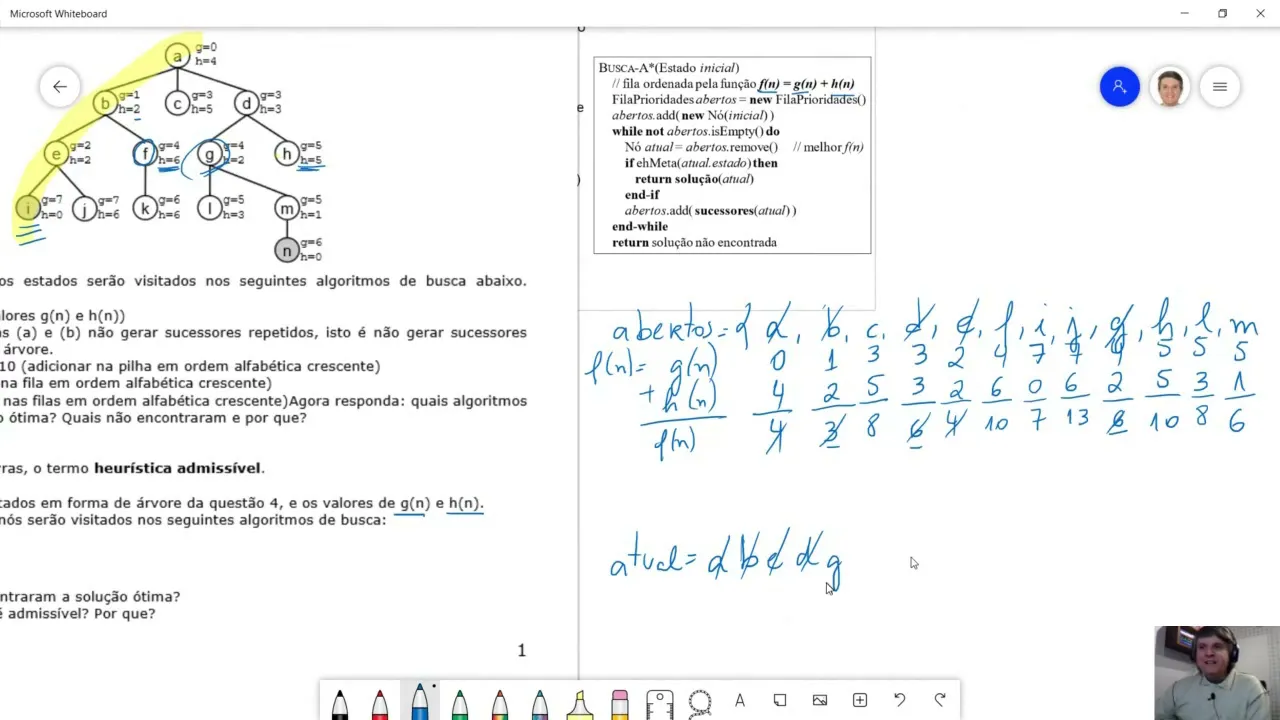 Microsoft Whiteboard
a g=0
h=4
b g=1
h=2
c g=3
h=5
d g=3
h=3
e g=2
h=2
f g=4
h=6
g g=4
h=2
h g=5
h=5
i g=7
h=0
j g=7
h=6
k g=6
h=6
l g=5
h=3
m g=5
h=1
n g=6
h=0
os estados serão visitados nos seguintes algoritmos de busca abaixo.
alores g(n) e h(n))
as (a) e (b) não gerar sucessores repetidos, isto é não gerar sucessores
árvore.
10 (adicionar na pilha em ordem alfabética crescente)
na fila em ordem alfabética crescente)
nas filas em ordem alfabética crescente)Agora responda: quais algoritmos
o ótima? Quais não encontraram e por que?
ras, o termo heurística admissível.
tados em forma de árvore da questão 4, e os valores de g(n) e h(n).
nós serão visitados nos seguintes algoritmos de busca:
ntraram a solução ótima?
é admissível? Por que?
1
e
)
BUSCA-A*(Estado inicial)
// fila ordenada pela função f(n) = g(n) + h(n)
FilaPrioridades abertos = new FilaPrioridades()
abertos.add( new Nó(inicial) )
while not abertos.isEmpty() do
Nó atual = abertos.remove() // melhor f(n)
if ehMeta(atual.estado) then
return solução(atual)
end-if
abertos.add( sucessores(atual) )
end-while
return solução não encontrada
abertos = { a, b, c, d, e, f, i, j, g, h, l, m
f(n) = g(n) 0 1 3 3 2 4 7 7 4 5 5 5
+ h(n) 4 2 5 3 2 6 0 6 2 5 3 1
f(n) 4 3 8 6 4 10 7 13 6 10 8 6
atual = a b e d g
A